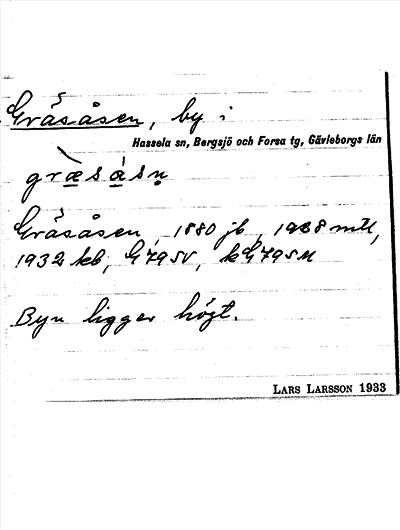 Gräsåsen, by i
Hassela sn, Bergsjö och Forsa tg, Gävleborgs län
græsåsṇ
Gräsåsen, 1880 jb, 1928 mtl,
1932 kb, G 79 SV, kG 79 SV
Byn ligger högt.
LARS LARSSON 1933